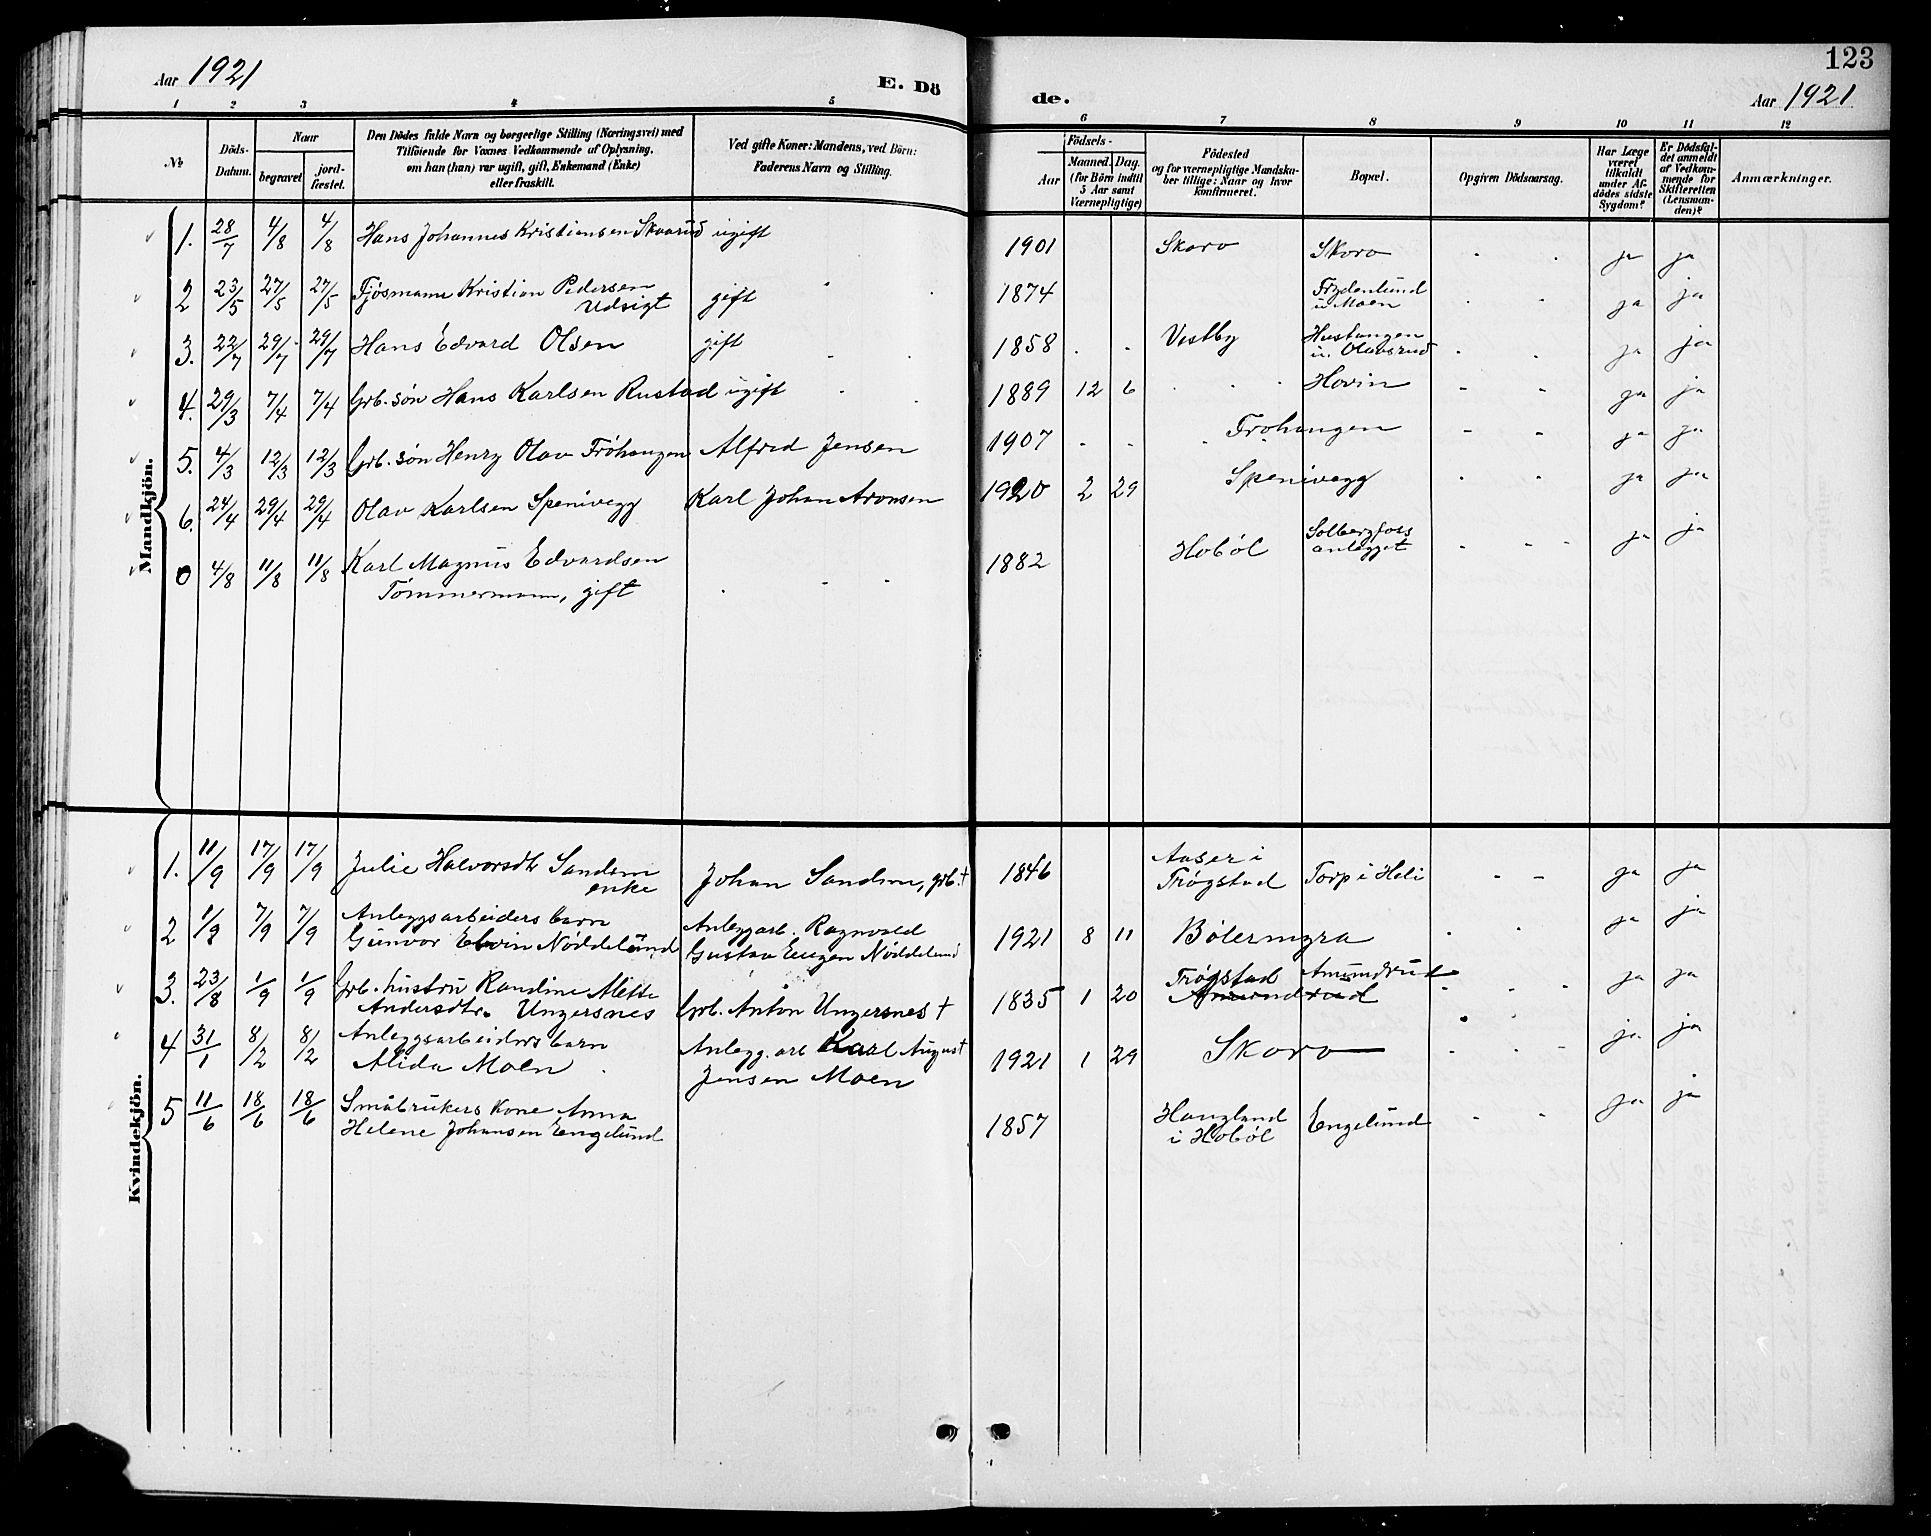 Aar 1921
E. Dö
de.
123
Aar 1921
1 2 3 4 5
6 7 8 9 10 11 12
№
Döds-
Datum.
Naar
begravet
jord-
fæstet.
Den Dödes fulde Navn og borgeelige Stilling (Næringsvei) med
Tilföiende for Voxnes Vedkommende af Oplysning,
om han (hun) var ugift, gift, Enkemand (Enke)
eller fraskilt.
Ved gifte Koner: Mandens, ved Börn:
Faderens Navn og Stilling.
Födsels-
Aar
Maaned. Dag.
(for Börn indtil
5 Aar samt
Værnepligtige)
Födested
og for værnepligtige Mandska-
ber tillige: Naar og hvor
konfirmeret.
Bopæl.
Opgiven Dödsaarsag.
Har Læge
været
tilkaldt
under Af-
dödes sidste
Sygdom?
Er Dödsfal-
det anmeldt
af Vedkom-
mende for
Skifteretten
(Lensman-
den)?
Anmærkninger.
Mandkjön.
1. 28/7 4/8 4/8 Hans Johannes Kristiansen Skaarud ugift 1901 Skoro Skoro ja ja
2 23/5 27/5 27/5 Fjøsmann Kristian Pedersen
Udsigt gift 1874 Frydenlund
u. Moen ja ja
3. 22/7 29/7 29/7 Hans Edvard Olsen gift 1858 Vestby Hustangen
u. Olavsrud ja ja
4. 29/3 7/4 7/4 Grb. søn Hans Karlsen Rustad ugift 1889 12 6 Hovin ja ja
5. 4/3 12/3 12/3 Grb. søn Henry Olav Frøhaugen Alfred Jensen 1907 Frøhaugen ja ja
6. 24/4 29/4 29/4 Olav Karlsen Spenivegg Karl Johan Aronsen 1920 2 29 Spenivegg ja ja
0 4/8 11/8 11/8 Karl Magnus Edvardsen
Tømmermann, gift 1882 Hobøl Solbergfoss
anlegget ja ja
Kvindekjön.
1. 11/9 17/9 17/9 Julie Halvorsdtr Sandem
enke Johan Sandem, grb. † 1846 Aaser i
Trøgstad Torp i Heli ja ja
2 1/9 7/9 7/9 Anleggsarbeiders barn
Gunvor Elvin Nøddelund Anleggarb. Ragnvald
Gustav Eugen Nøddelund 1921 8 11 Bølermyra ja ja
3. 23/8 1/9 1/9 Grb. hustru Randine Alette
Andersdtr. Ungersnes Grb. Anton Ungersnes † 1835 1 20 Trøgstad Amundrud
Amundrud ja ja
4 31/1 8/2 8/2 Anleggsarbeiders barn
Alida Moen Anlegg. arb Karl August
Jensen Moen 1921 1 29 Skoro ja ja
5 11/6 18/6 18/6 Småbrukers kone Anna
Helene Johansen Engelund 1857 Haugland
i Hobøl Engelund ja ja